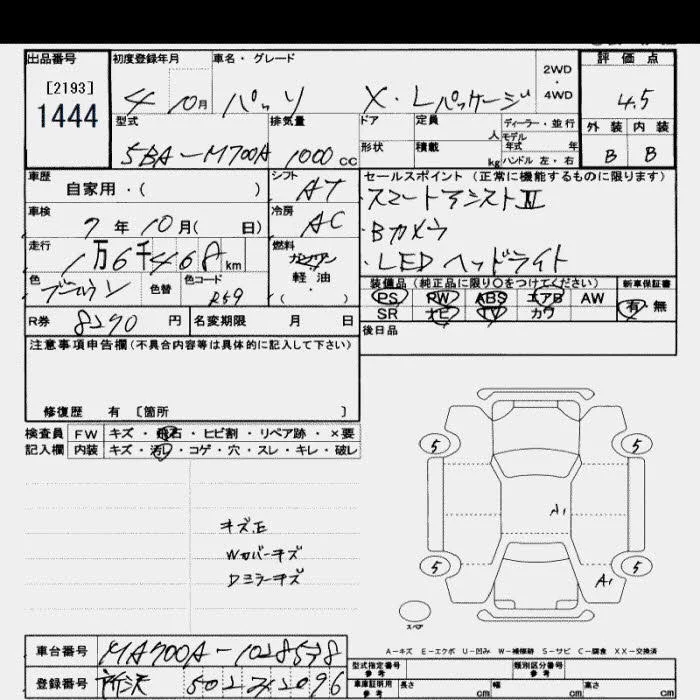 出品番号 初度登録年月 車名・グレード 2WD・4WD 評価点
[2193]
1444
4 10月 パッソ X・Lパッケージ 4.5
型式 排気量 ドア 定員 人 ディーラー・並行 外装 内装
5BA-M700A 1000cc 形状 積載 kg モデル年式 年 ハンドル 左・右 B B
車歴 自家用・( ) シフト AT セールスポイント (正常に機能するものに限ります)
・スマートアシストIII
車検 7年10月( 日) 冷房 AC
・Bカメラ
走行 1万6千468km 燃料 ガソリン 軽油・( )
・LEDヘッドライト
色 ブラウン 色替 色コード R59
装備品 (純正品に限り○をつけてください) 新車保証書
PS PW ABS エアB AW 有・無
SR ナビ TV カワ
R券 8290円 名変期限 月 日 後日品
注意事項申告欄(不具合内容等は具体的に記入して下さい)
修復歴 有 〔箇所 〕
検査員 FW キズ・飛石・ヒビ割・リペア跡・×要
記入欄 内装 キズ・汚レ・コゲ・穴・スレ・キレ・破レ
5 5
A1
キズ正
Wカバーキズ
Dミラーキズ
5 5
A1
スペア
A-キズ E-エクボ U-凹み W-補修跡 S-サビ C-腐食 XX-交換済
車台番号 M700A-1028538
型式指定番号 参考 類別区分番号 参考
登録番号 所沢 502
車庫証明用 参考 長さ cm 幅 cm 高さ cm